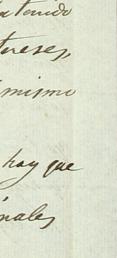 atenido
tereses,
mismo
hay que
nales